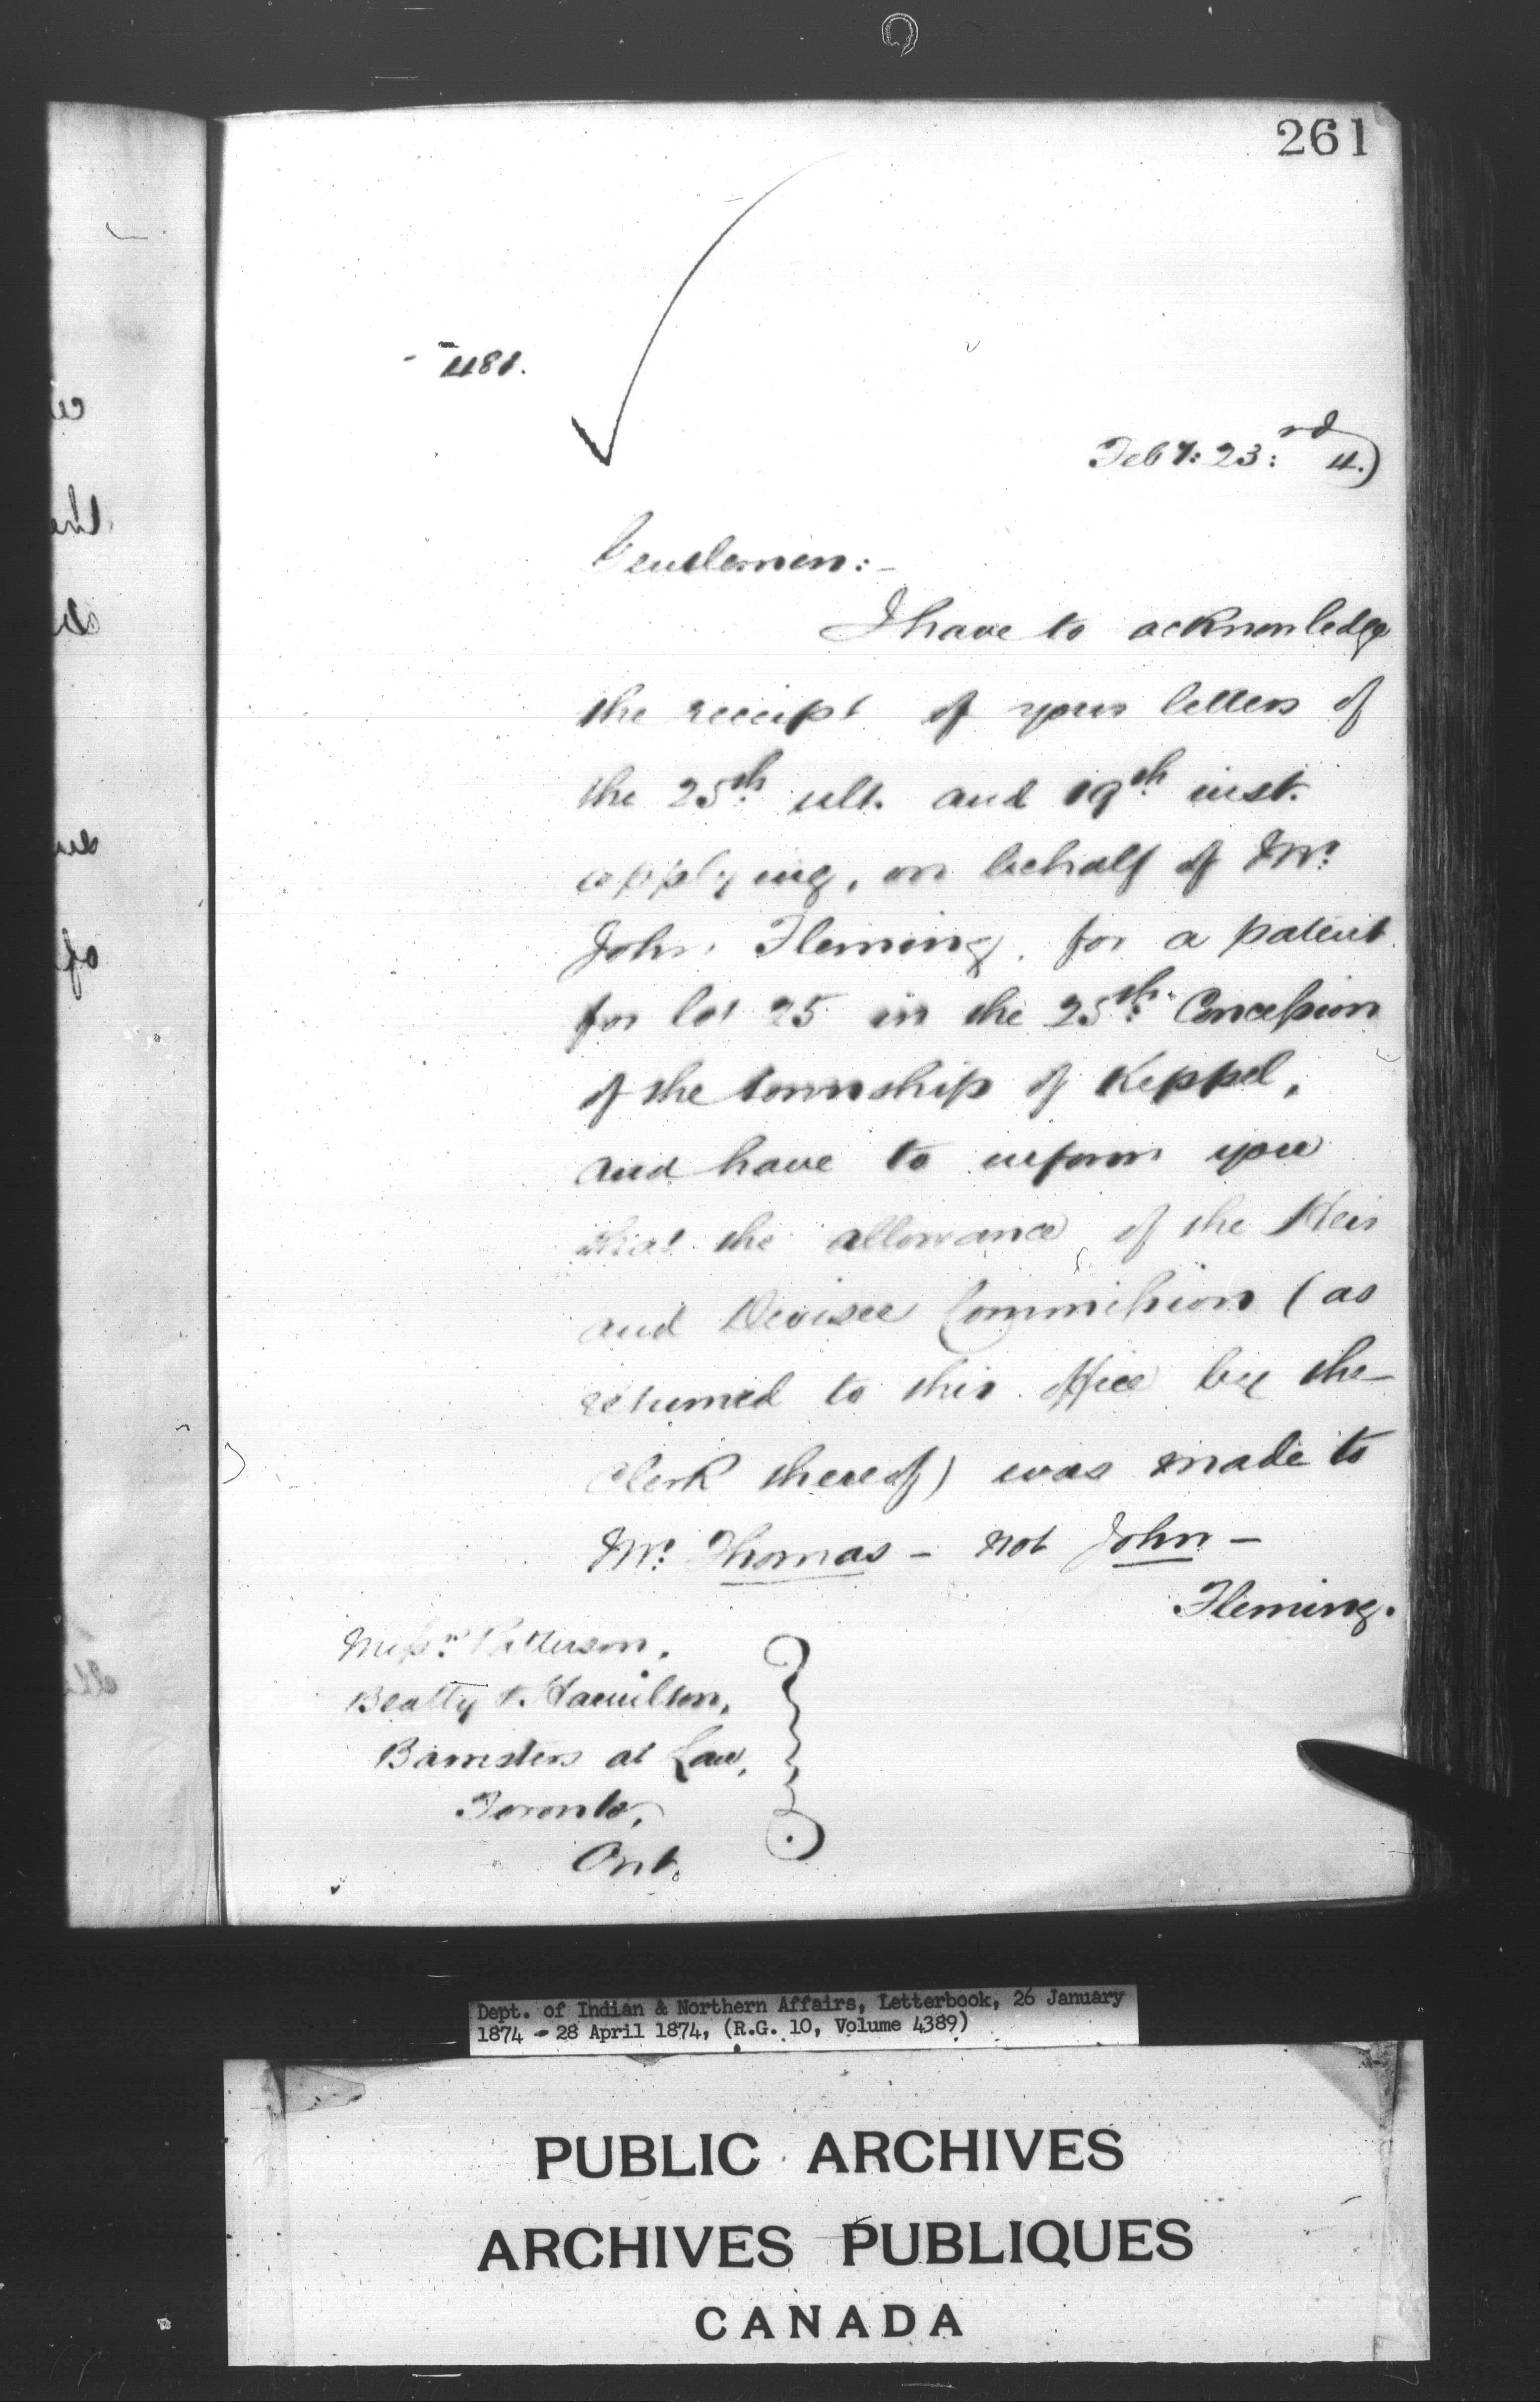 261
481.
Feby: 23:rd 4.)
Gentlemen:-
I have to acknowledge
the receipt of your letters of
the 25th ult. and 19th inst.
applying, on behalf of Mr.
John Fleming, for a patent
for lot 25 in the 25th Concession
of the township of Keppel,
and have to inform you
that the allowance of the Heir
and Devisee Commission (as
returned to this Office by the
Clerk thereof) was made to
Mr. Thomas - not John -
Fleming.
Messrs. Patterson,
Beatty & Hamilton,
Barristers at Law,
Toronto,
Ont.
Dept. of Indian & Northern Affairs, Letterbook, 26 January
1874 - 28 April 1874, (R.G. 10, Volume 4389)
PUBLIC ARCHIVES
ARCHIVES PUBLIQUES
CANADA